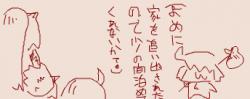 よめに
家を追い出された
ので少々の間泊め
くれないかてる